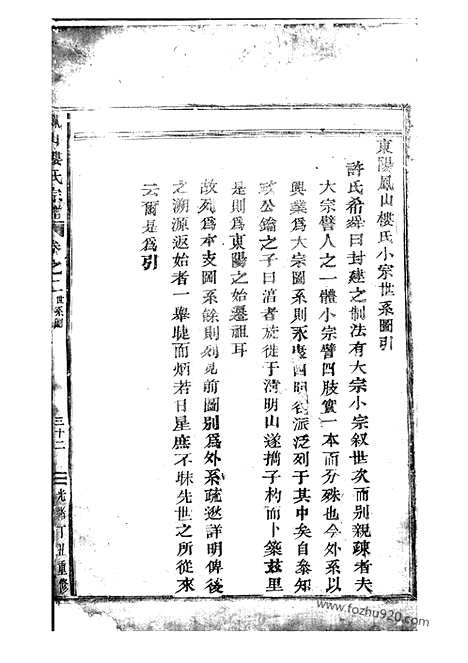 東陽鳳山樓氏小宗世系圖引
許氏希舜曰封建之制法有大宗小宗叙世次而別親疎者夫
大宗譬人之一體小宗譬四肢實一本而分殊也今外系以
興業爲大宗圖系則永暨四明各派泛列于其中矣自參知
政公鑰之子曰涫者旋徙于淸明山遂擕子杓而卜築茲里
是則爲東陽之始遷祖耳
故列爲本支圖系餘則列見前圖別爲外系疏逖詳明俾後
之溯源返始者一舉睫而炳若日星庶不昧先世之所從來
云爾是爲引
鳳山樓氏宗譜
卷之二
世系圖
三十二
光緒丁丑重修
www.fozhu920.com